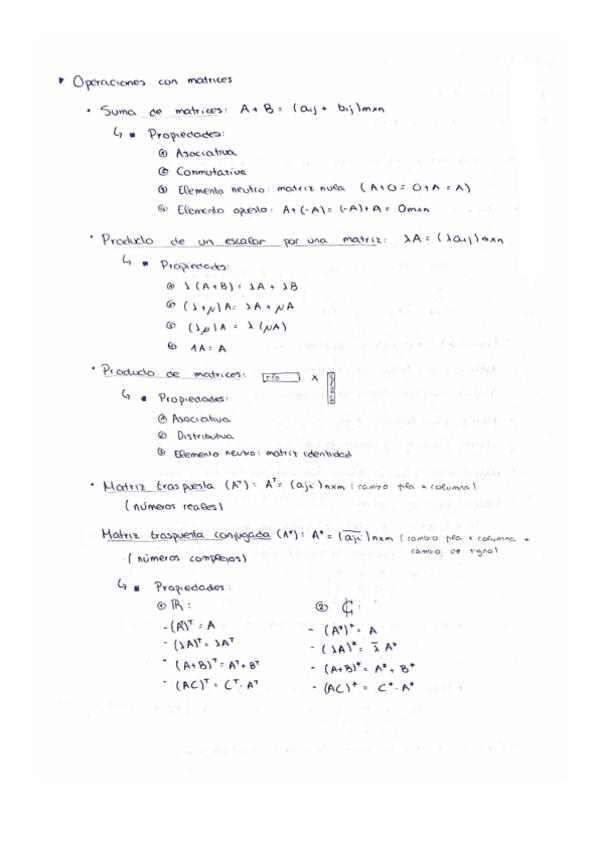 Operaciones con matrices
• Suma de matrices: A + B = (aij + bij)mxn
↳ ▪ Propiedades:
① Asociativa
② Conmutativa
③ Elemento neutro: matriz nula (A+O = O+A = A)
④ Elemento opuesto: A+(-A) = (-A)+A = Omxn
• Producto de un escalar por una matriz: λA = (λaij)mxn
↳ ▪ Propiedades:
① λ(A+B) = λA + λB
② (λ+μ)A = λA + μA
③ (λμ)A = λ(μA)
④ 1A = A
• Producto de matrices: fila x columna
↳ ▪ Propiedades:
① Asociativa
② Distributiva
③ Elemento neutro: matriz identidad
• Matriz traspuesta (Aᵀ): Aᵀ = (aji)nxm (cambio fila x columna)
(números reales)
Matriz traspuesta conjugada (A*): A* = (a̅j̅i̅)nxm (cambio fila x columna +
cambio de signo)
(números complejos)
↳ ▪ Propiedades:
① ℝ: ② ℂ:
- (Aᵀ)ᵀ = A - (A*)* = A
- (λA)ᵀ = λAᵀ - (λA)* = λ̅ A*
- (A+B)ᵀ = Aᵀ + Bᵀ - (A+B)* = A* + B*
- (AC)ᵀ = Cᵀ · Aᵀ - (AC)* = C* · A*